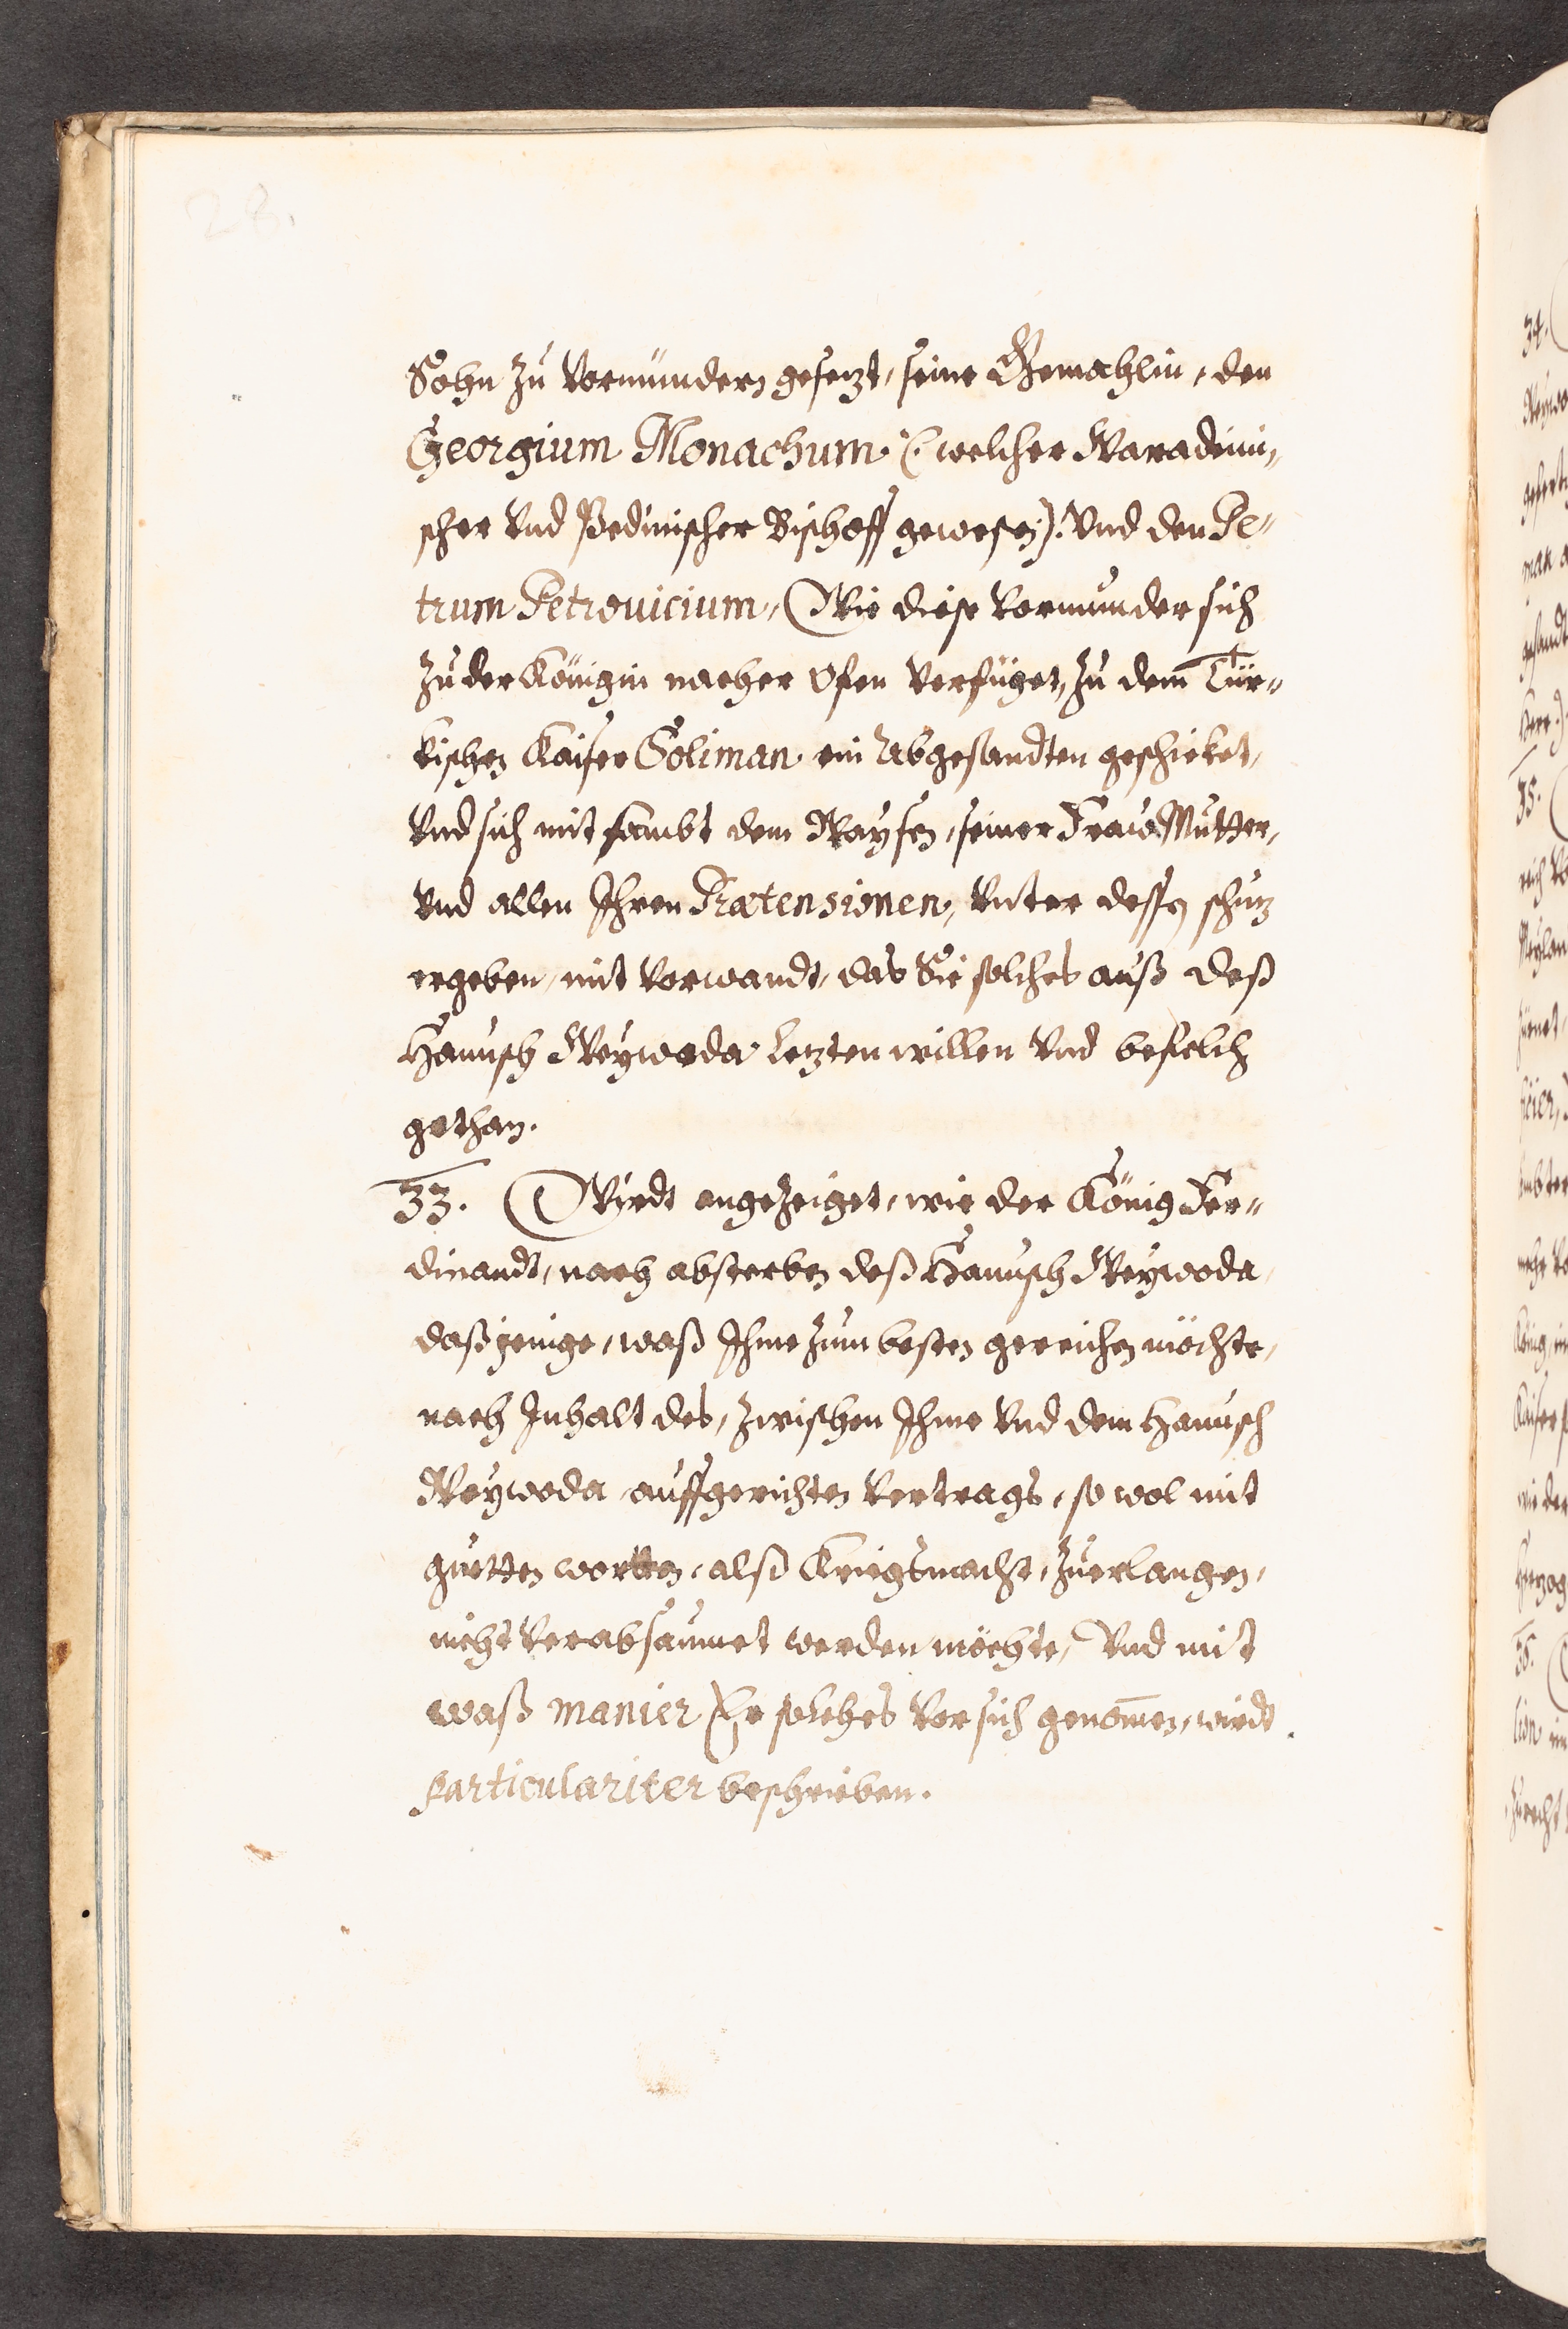 28.
Sohn zu Vormündern gesetzt, seine Gemahlin, den
Georgium Monachum /: welcher Waradeini,,
scher Vnd Bischoff gewesen :/ Vnd den Pe,,
trum Petrouicium, Wie diese Vormunder sich
zu der Königin nacher Ofen Verfüget, zu dem Tür,,
kischen Kaiser Soliman ein Abgesandten geschicket,
Vnd sich mit sambt dem Waysen, seiner Fraw Mutter,
Vnd allen Ihren Prætensionen, Vnter dessen schutz
ergeben, mit Vorwandt, das Sie solches auß deß
Hanusch Weywoda letzten willen Vnd befelch
gethan.
33. Wirdt angezeiget, wie der König Fer,,
dinandt, nach absterben deß Hanusch Weywoda
daßjenige, waß Ihme zum besten gereichen möchte,
nach Inhalt des, zwischen Ihme Vnd dem Hanusch
Weywoda auffgerichten Vertrags, so wol mit
guetten wortten, alß Kriegsmacht, zuerlangen,
nicht Verabsaumet werden möchte, Vnd mit
waß manier Er solches Vor sich genom̄en, wirdt
particulariter beschrieben.